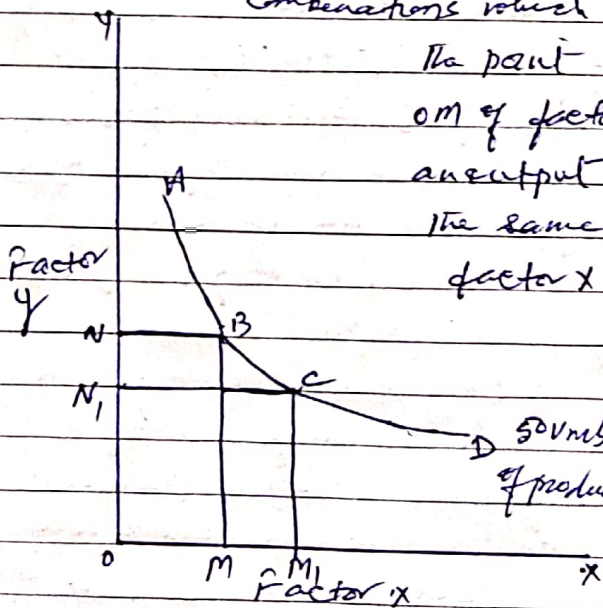 Combinations which
Y
The point
OM of facto
an output
A
The same
Factor
Y
factor X
N
B
N1
C
D
50 Units
of produ
O
M
M1
X
Factor X